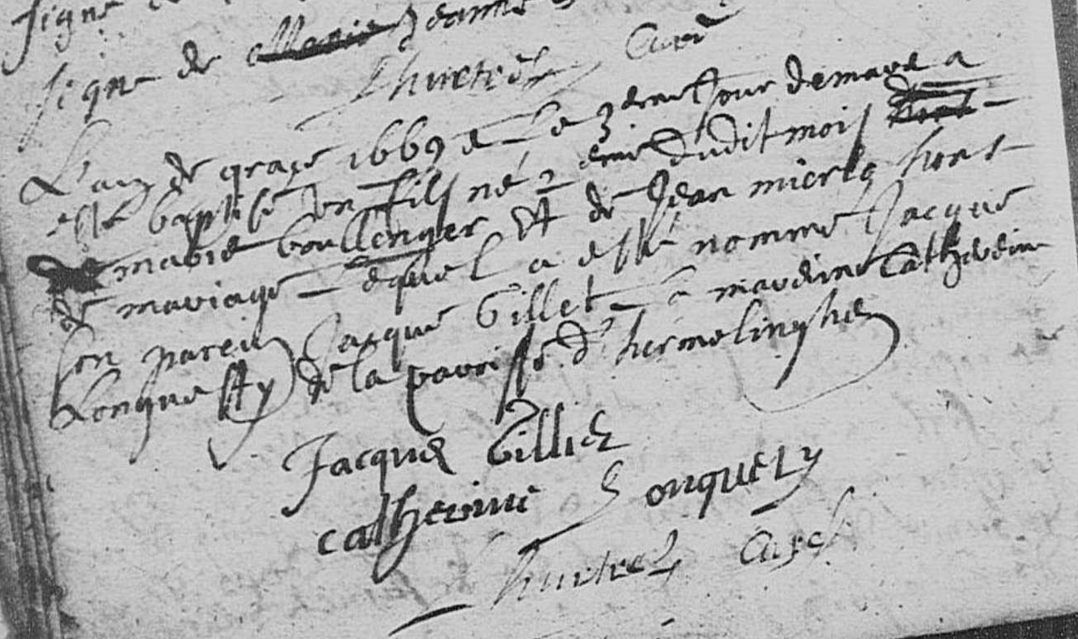 signe
signe de Marie Jeanne
Curé
L'an de grace 1669 le 3eme jour de mars a
esté baptisé un fils né 2 eme dudit mois
de marie boullenger et de Jean mierlo hors
de mariage lequel a esté nommé Jacque
son parein Jacque Gillet la mareine Catherine
Lonquesty de la parroisse d'hermelinghe
Jacques Gillier
catherine Lonquety
hurtrel Curé